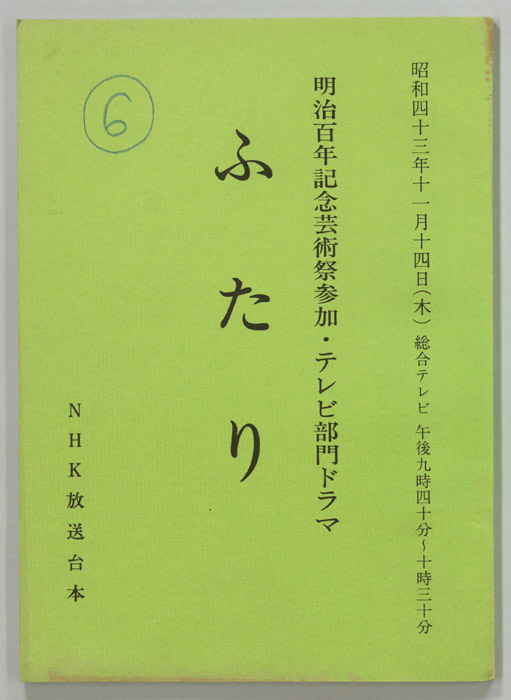 昭和四十三年十一月十四日(木) 総合テレビ 午後九時四十分~十時三十分
明治百年記念芸術祭参加・テレビ部門ドラマ
ふたり
6
NHK放送台本